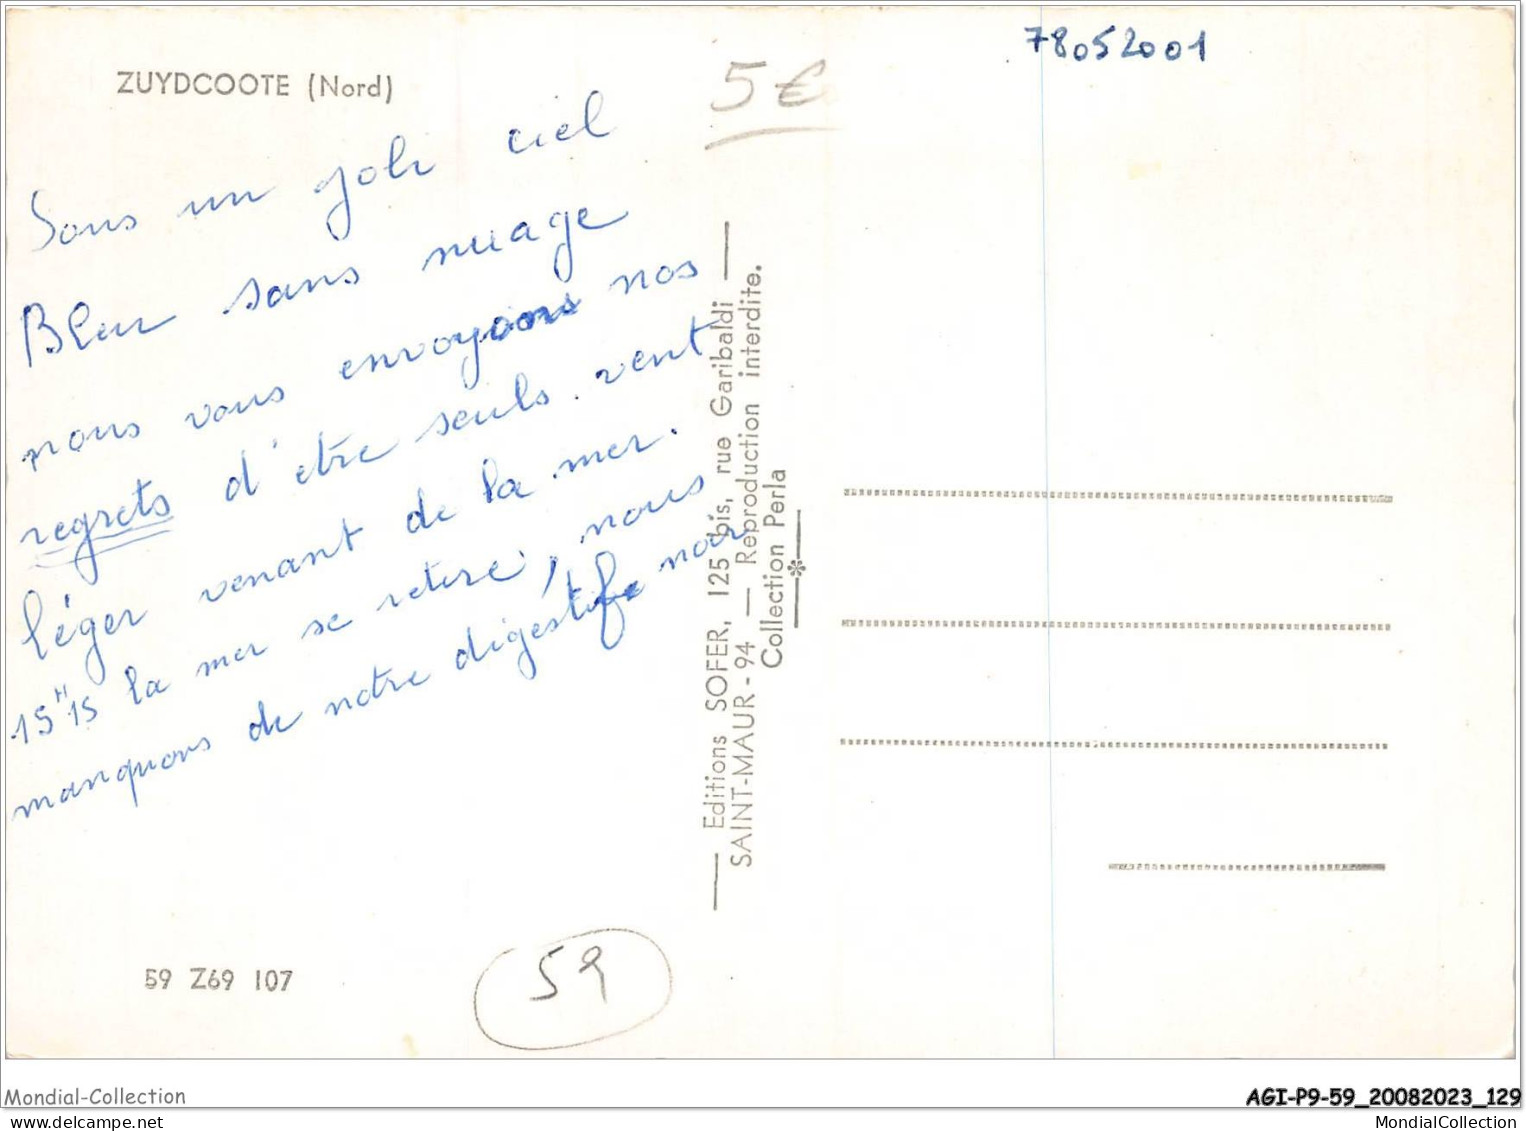 ZUYDCOOTE (Nord)
78052001
5€
Sous un joli ciel
Bleu sans nuage
nous vous envoyons nos
regrets d'etre seuls. vent
léger venant de la mer.
15H15 la mer se retire, nous
manquons de notre digestif noir
— Editions SOFER, 125 bis, rue Garibaldi —
SAINT-MAUR - 94 — Reproduction interdite.
Collection Perla
59 Z69 107
59
Mondial-Collection
AGI-P9-59_20082023_129
MondialCollection